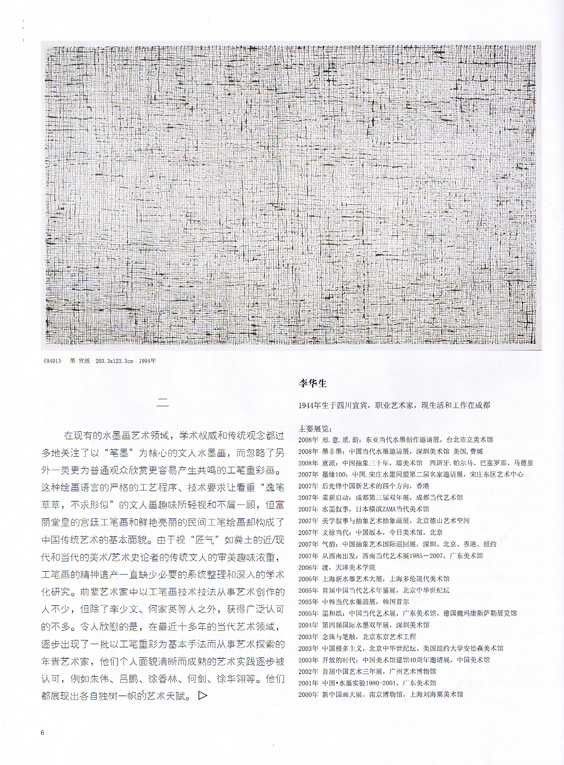 《9401》 墨 宣纸 203.3x123.3cm 1994年
二
在现有的水墨画艺术领域，学术权威和传统观念都过
多地关注了以“笔墨”为核心的文人水墨画，而忽略了另
外一类更为普通观众欣赏更容易产生共鸣的工笔重彩画。
这种绘画语言的严格的工艺程序、技术要求让看重“逸笔
草草，不求形似”的文人画趣味所轻视和不屑一顾，但富
丽堂皇的宫廷工笔画和鲜艳亮丽的民间工笔绘画却构成了
中国传统艺术的基本面貌。由于视“匠气”如粪土的近/现
代和当代的美术/艺术史论者的传统文人的审美趣味浓重，
工笔画的精神遗产一直缺少必要的系统整理和深入的学术
化研究。前辈艺术家中以工笔画技术技法从事艺术创作的
人不少，但除了李少文、何家英等人之外，获得广泛认可
的不多。令人欣慰的是，在最近十多年的当代艺术领域，
逐步出现了一批以工笔重彩为基本手法而从事艺术探索的
年青艺术家，他们个人面貌清晰而成熟的艺术实践逐步被
认可，例如朱伟、吕鹏、徐香林、何剑、徐华翎等。他们
都展现出各自独树一帜的艺术天赋。
李华生
1944年生于四川宜宾，职业艺术家，现生活和工作在成都
主要展览：
2008年 形.意.质.韵：东亚当代水墨创作邀请展，台北市立美术馆
2008年 墨非墨：中国当代水墨邀请展，深圳美术馆 美国.费城
2008年 意派：中国抽象三十年，墙美术馆 西班牙.帕尔马、巴塞罗那、马德里
2007年 墨缘100：中国.宋庄水墨同盟第二届名家邀请展，宋庄东区艺术中心
2007年 后先锋中国新艺术的四个方向，香港
2007年 重新启动：成都第三届双年展，成都当代艺术馆
2007年 水墨叙事，日本横滨ZAMA当代美术馆
2007年 美学叙事与抽象艺术抽象画展，北京德山艺术空间
2007年 文脉当代：中国版本，今日美术馆，北京
2007年 气韵：中国抽象艺术国际巡回展，深圳、北京、香港、纽约
2007年 从西南出发：西南当代艺术展1985－2007，广东美术馆
2006年 渡，天津美术学院
2006年 上海新水墨艺术大展，上海多伦现代美术馆
2005年 首届中国当代艺术年鉴展，北京中华世纪坛
2005年 中韩当代水墨画展，韩国首尔
2005年 墨和纸：中国当代艺术展，广东美术馆、德国魏玛康斯萨勒展览馆
2004年 第四届国际水墨双年展，深圳美术馆
2003年 念珠与笔触，北京东京艺术工程
2003年 中国极多主义，北京中华世纪坛，美国纽约大学安德森美术馆
2003年 开放的时代：中国美术馆建馆40周年邀请展，中国美术馆
2002年 首届中国艺术三年展，广州艺术博物馆
2001年 中国•水墨实验1980-2001，广东美术馆
2000年 新中国画大展，南京博物馆，上海刘海粟美术馆
6